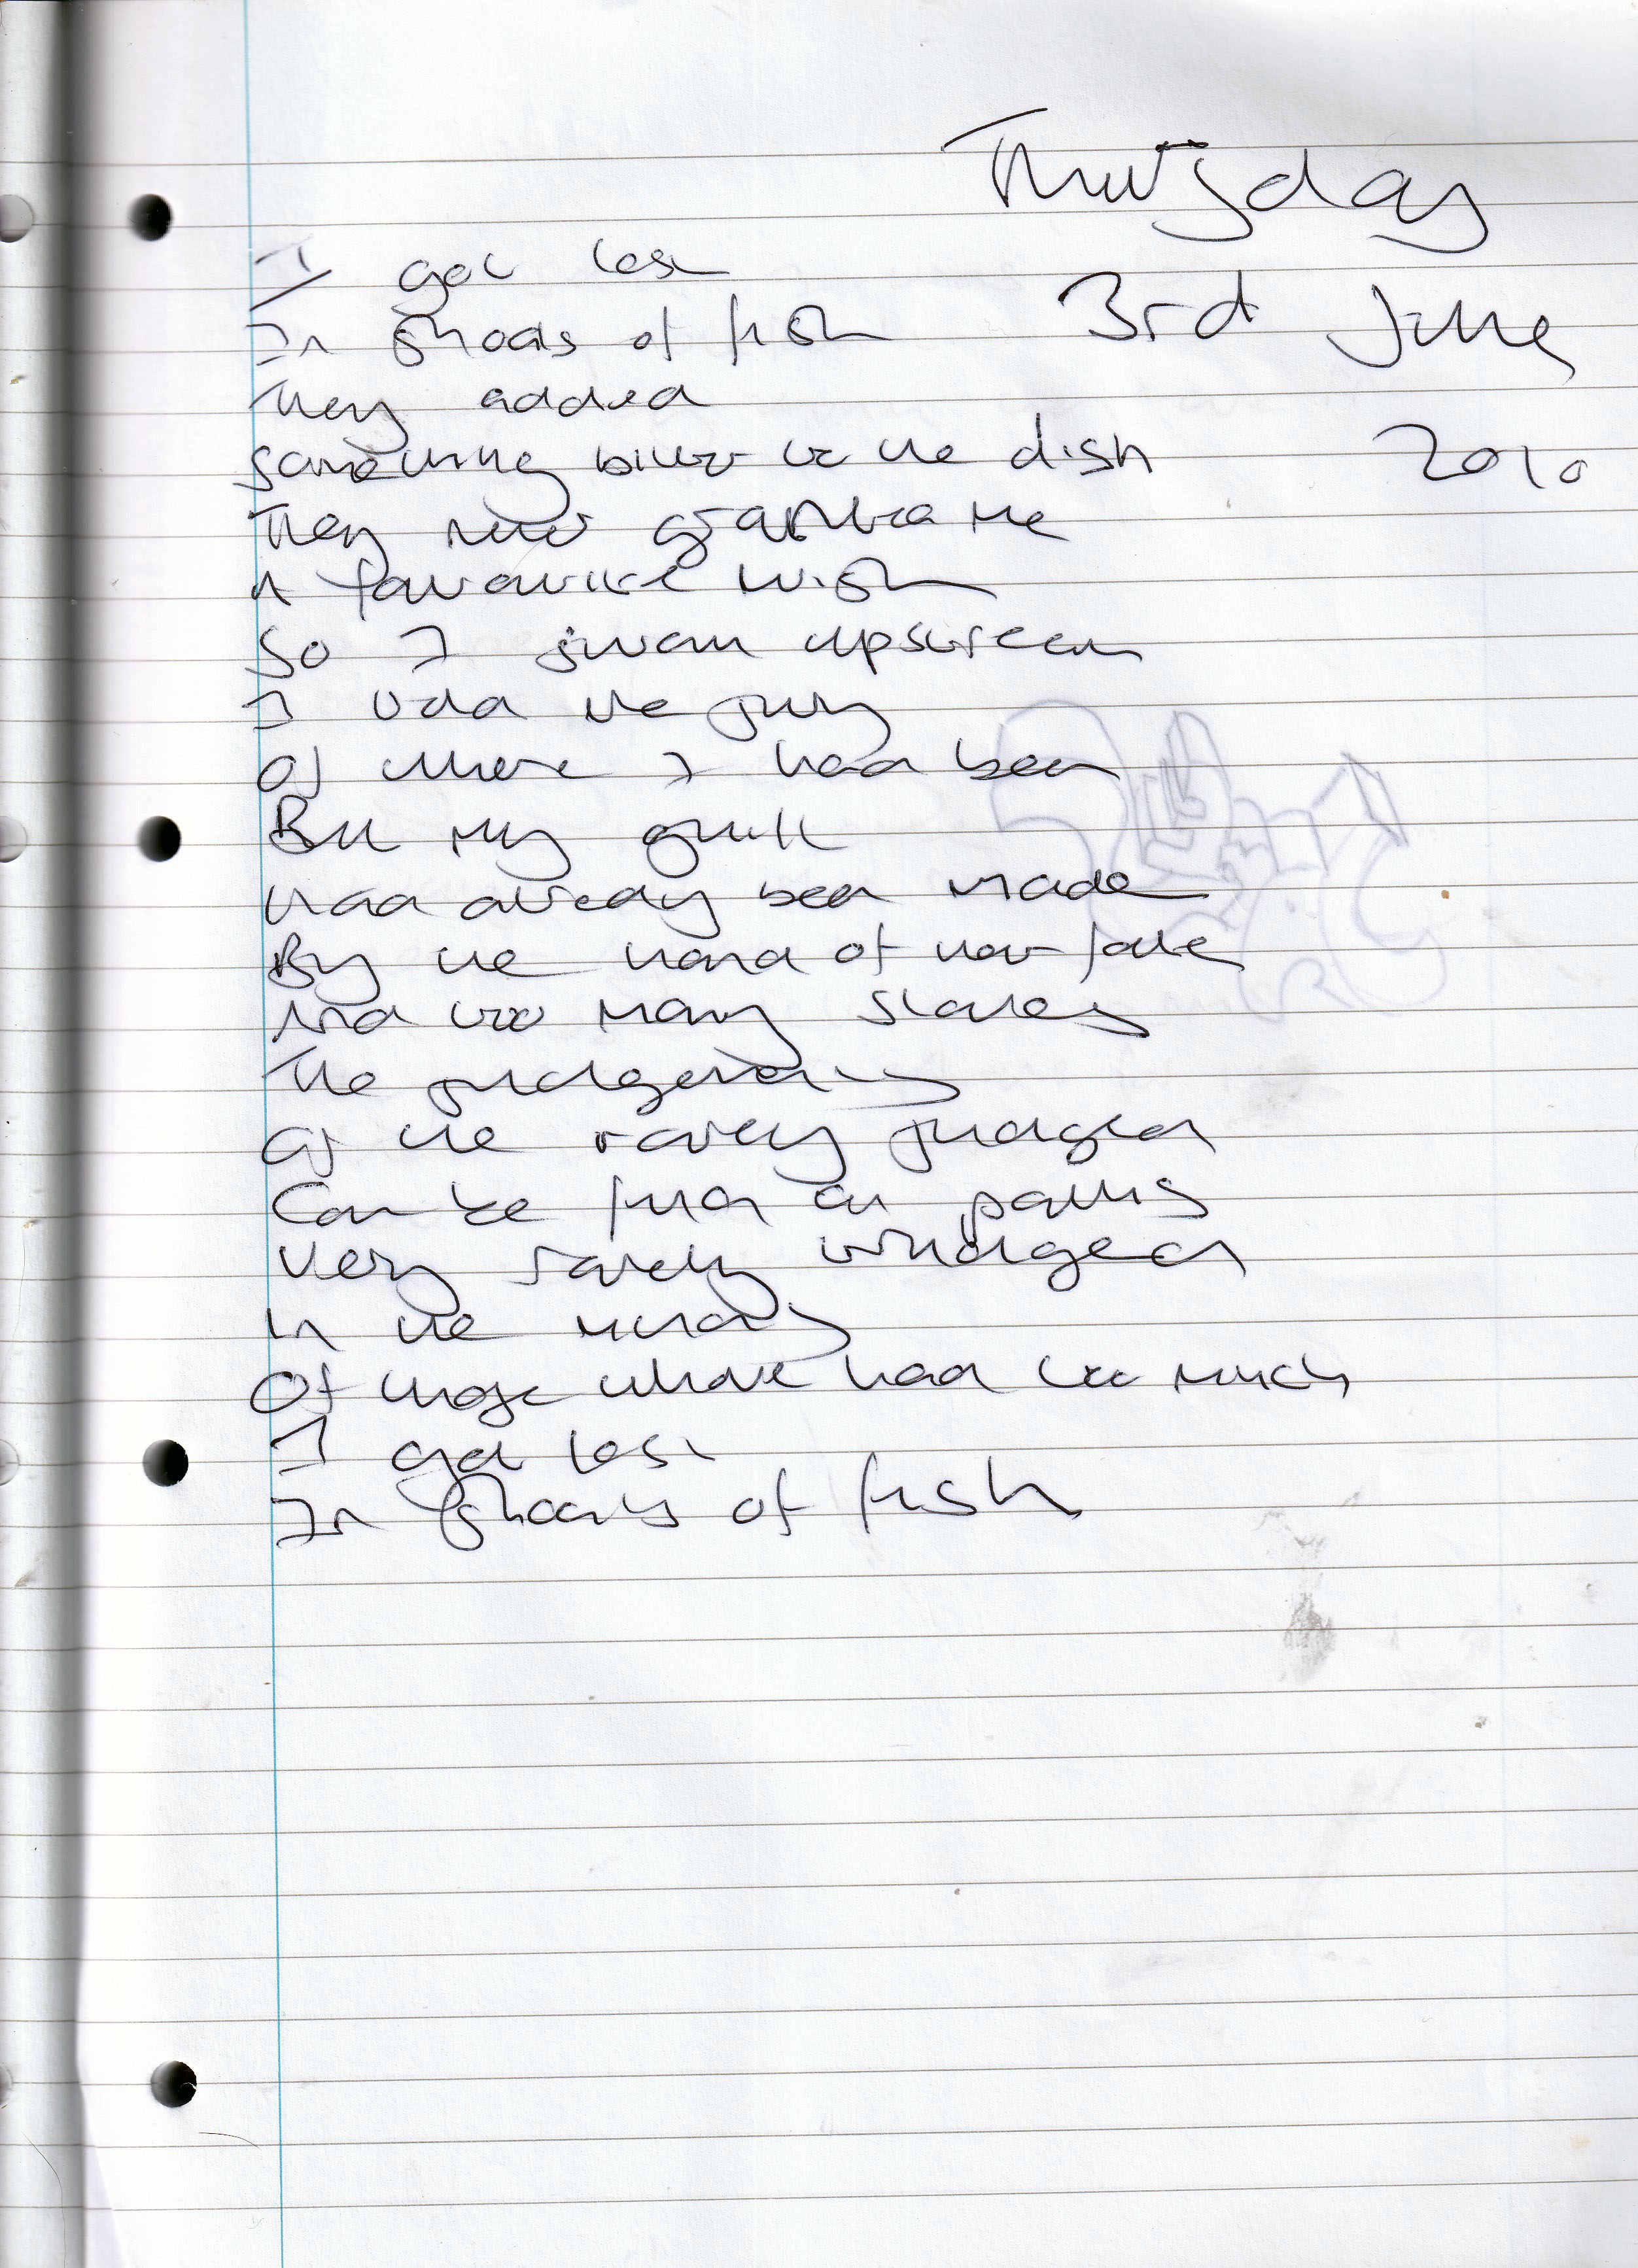 Thursday
3rd June
2010
I got lost
In shoals of fish
They added
something bitter to the dish
They never granted me
A favourite wish
So I swam upstream
I told the jury
Of where I had been
But my guilt
had already been made
By the hand of fate
And too many slaves
The
Of the rarely judged
Can be fuck all
Very rarely
In the
Of those who have had too much
I got lost
In shoals of fish